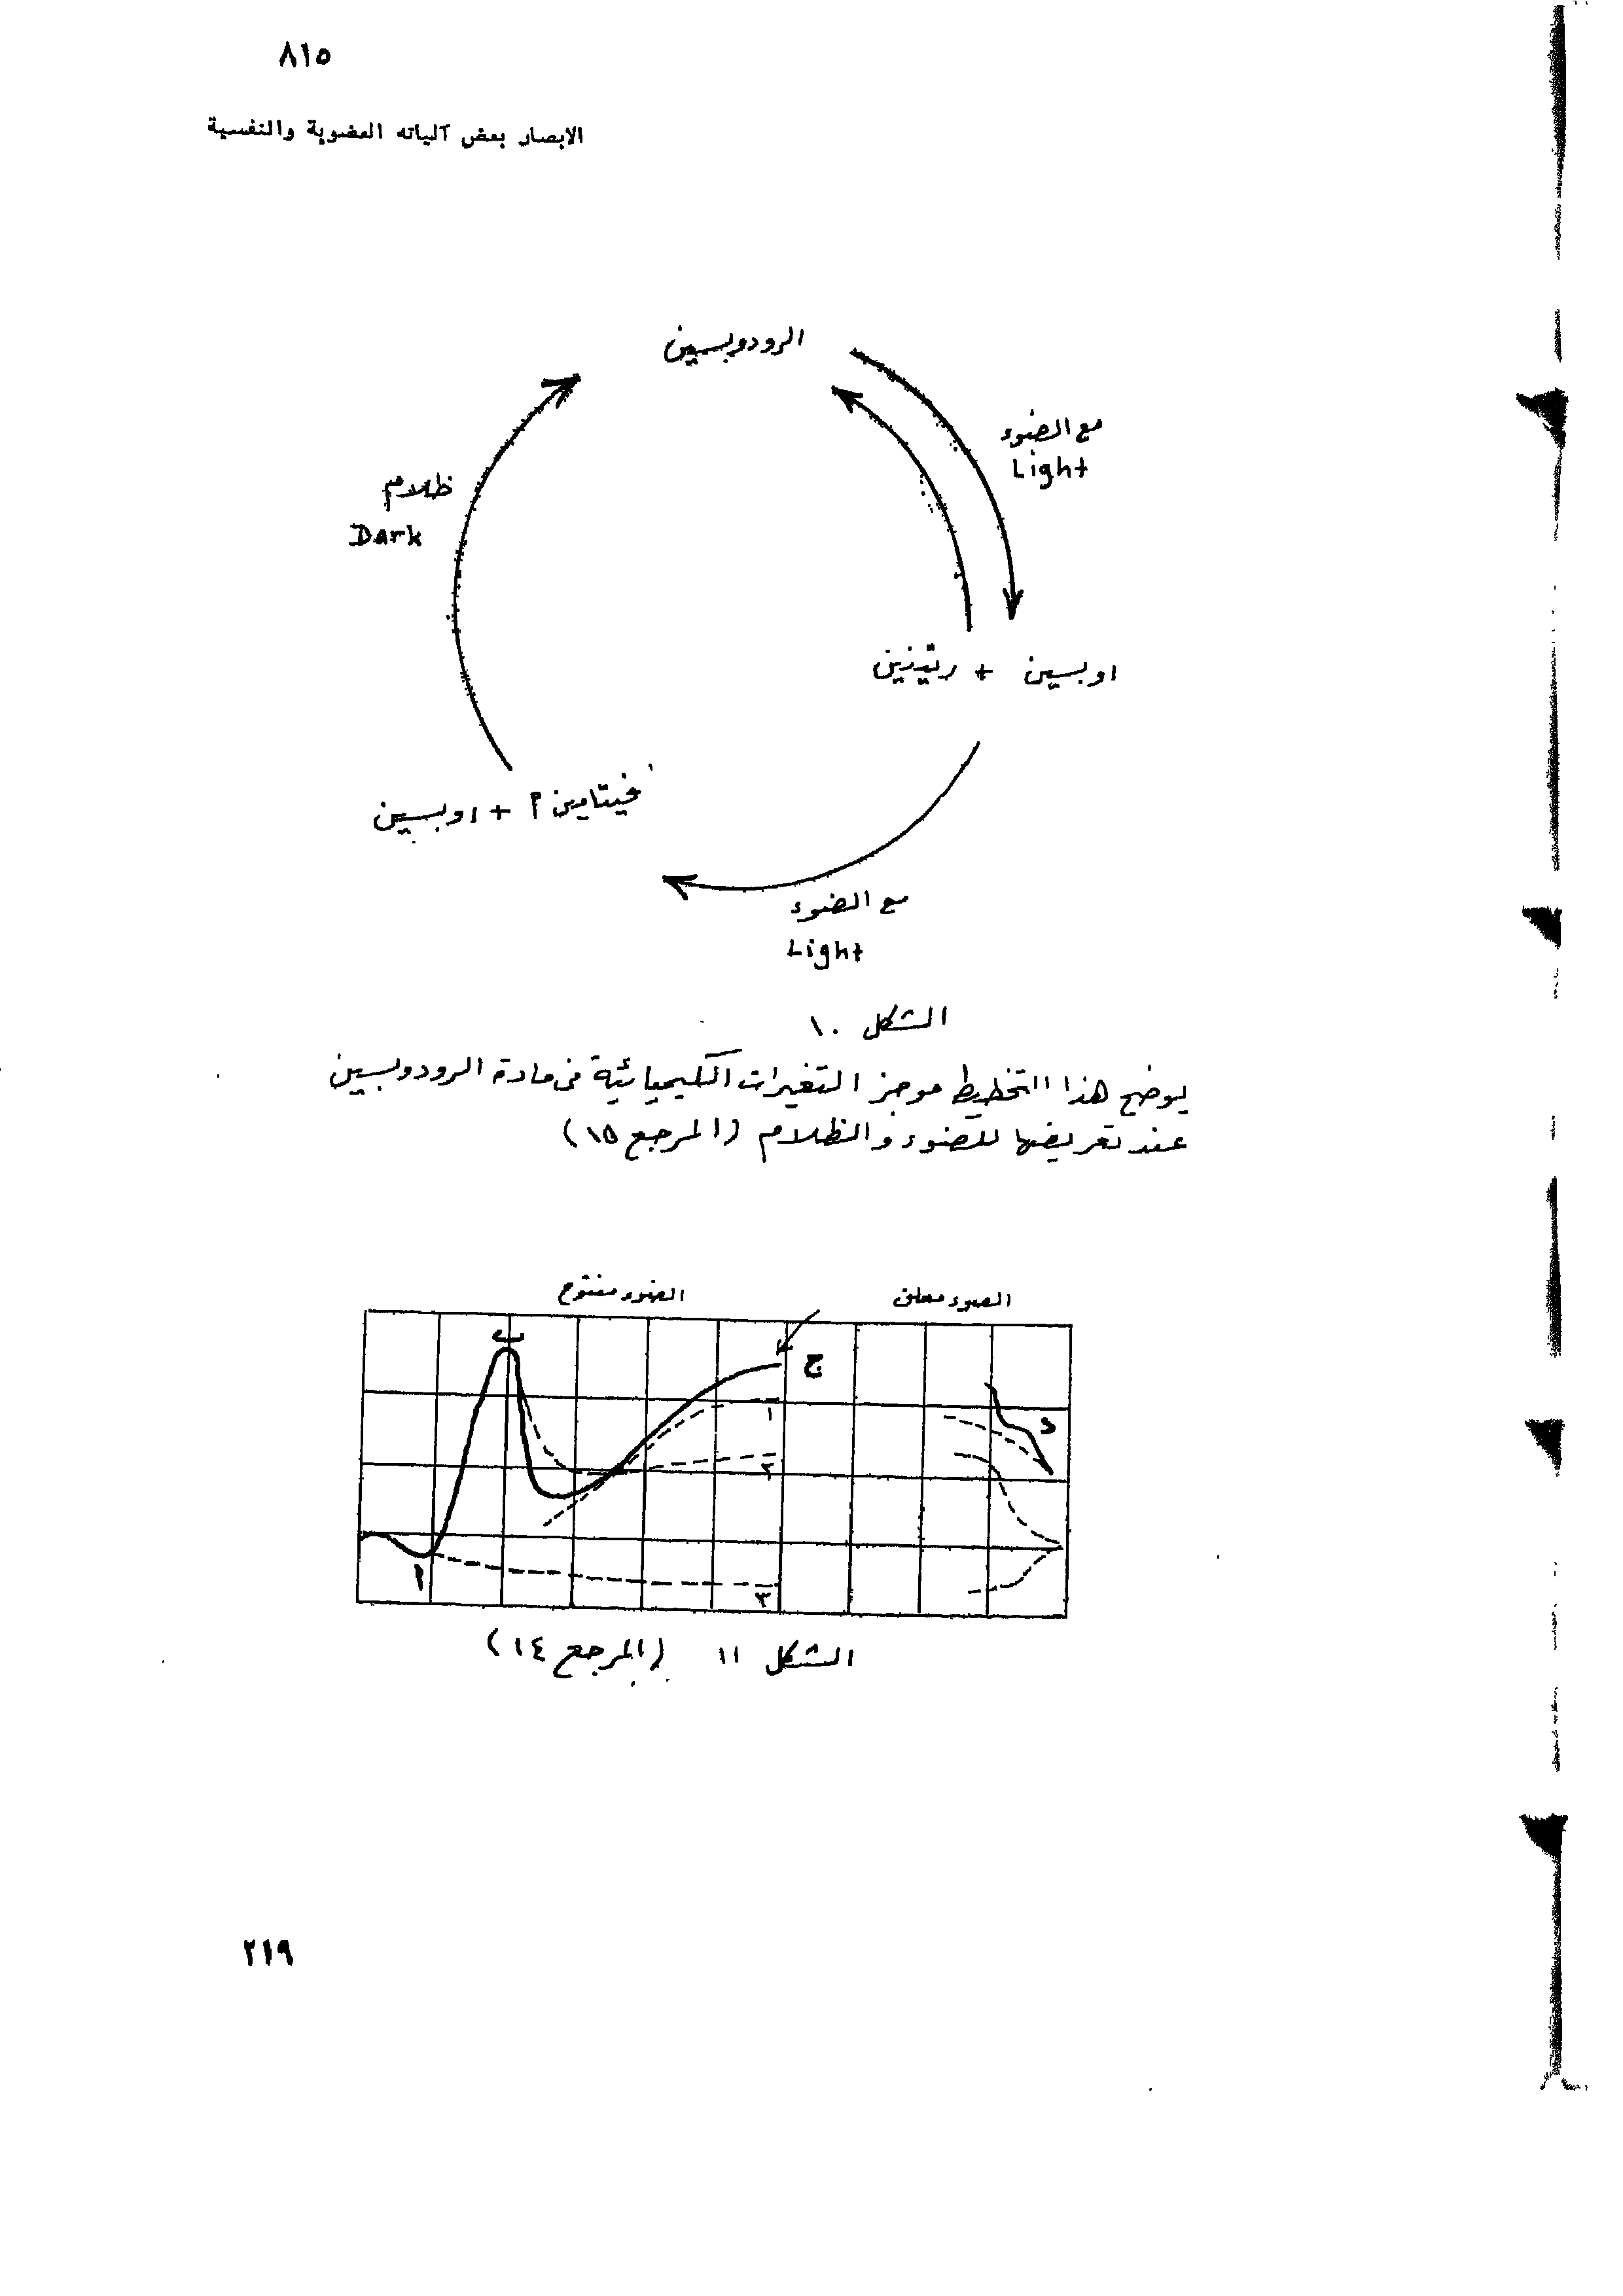 ٨١٥
الابصار بعض آلياته العضوية والنفسية
الرودوبسين
مع الضوء
Light
ظلام
Dark
اوبسين + رتينين
فيتامين أ + اوبسين
مع الضوء
Light
الشكل ١٠
يوضح هذا التخطيط موجز التغيرات الكيميائية في مادة الرودوبسين
عند تعريضها للضوء والظلام (المرجع ١٥)
الضوء مفتوح
الضوء مغلق
ب
ج
١
د
٢
أ
٣
الشكل ١١ (المرجع ١٤)
٢١٩